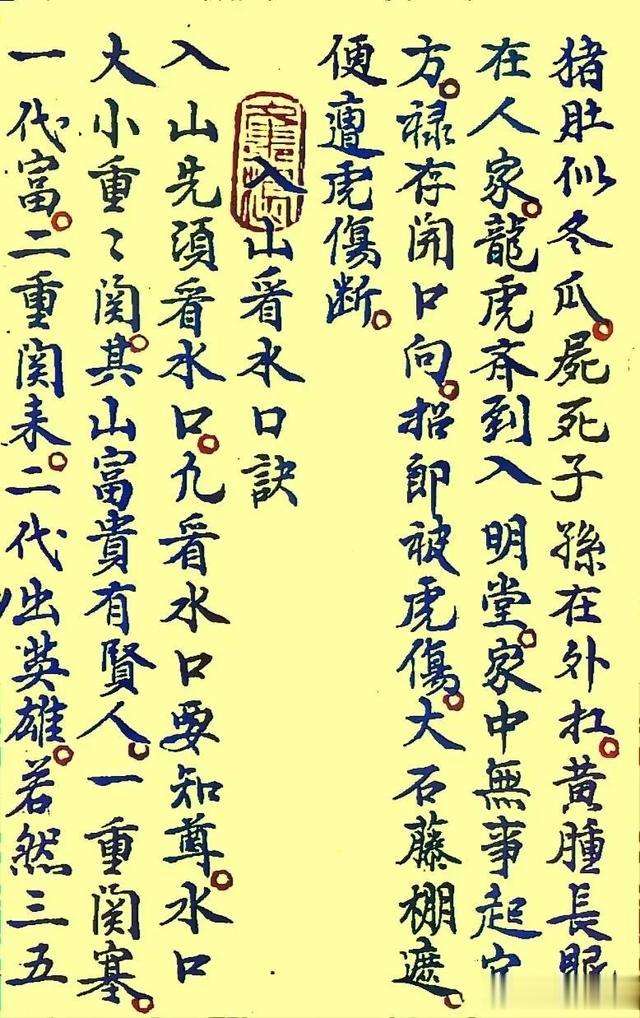 猪肚似冬瓜。屍死子孫在外扛。黃腫長眠
在人家。龍虎斉到入明堂。家中無事起
方。禄存開口向。招郎被虎傷。大石藤棚遮。
便遭虎傷断。
入山看水口訣
入山先須看水口。九看水口要知尊。水口
大小重〻関。其山富貴有賢人。一重関塞。
一代富。二重関来。二代出英雄。若然三五